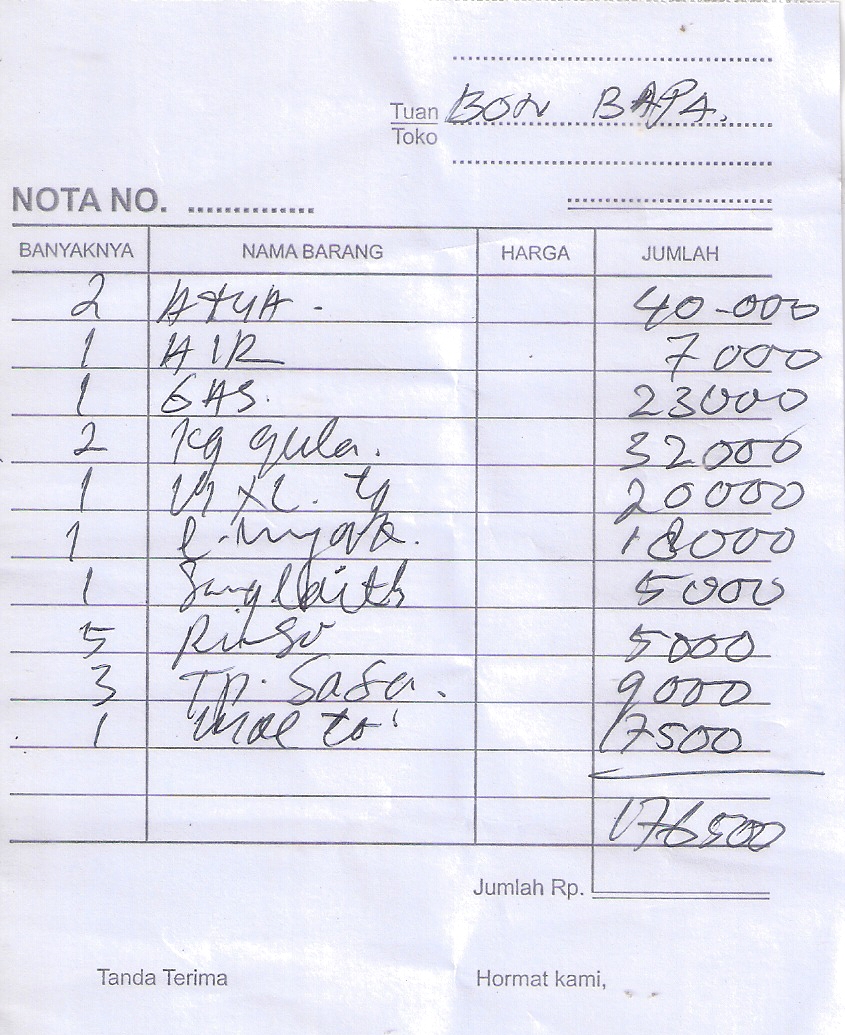 Tuan BON BAPA.
Toko
NOTA NO. ..............
BANYAKNYA NAMA BARANG HARGA JUMLAH
2 40-000
1 AIR 7000
1 GAS. 23000
2 kg gula. 32000
1 20000
1 18000
1 Sunglaith 5000
5 Rinso 5000
3 Tp. Sasa. 9000
1 17500
176500
Jumlah Rp.
Tanda Terima Hormat kami,